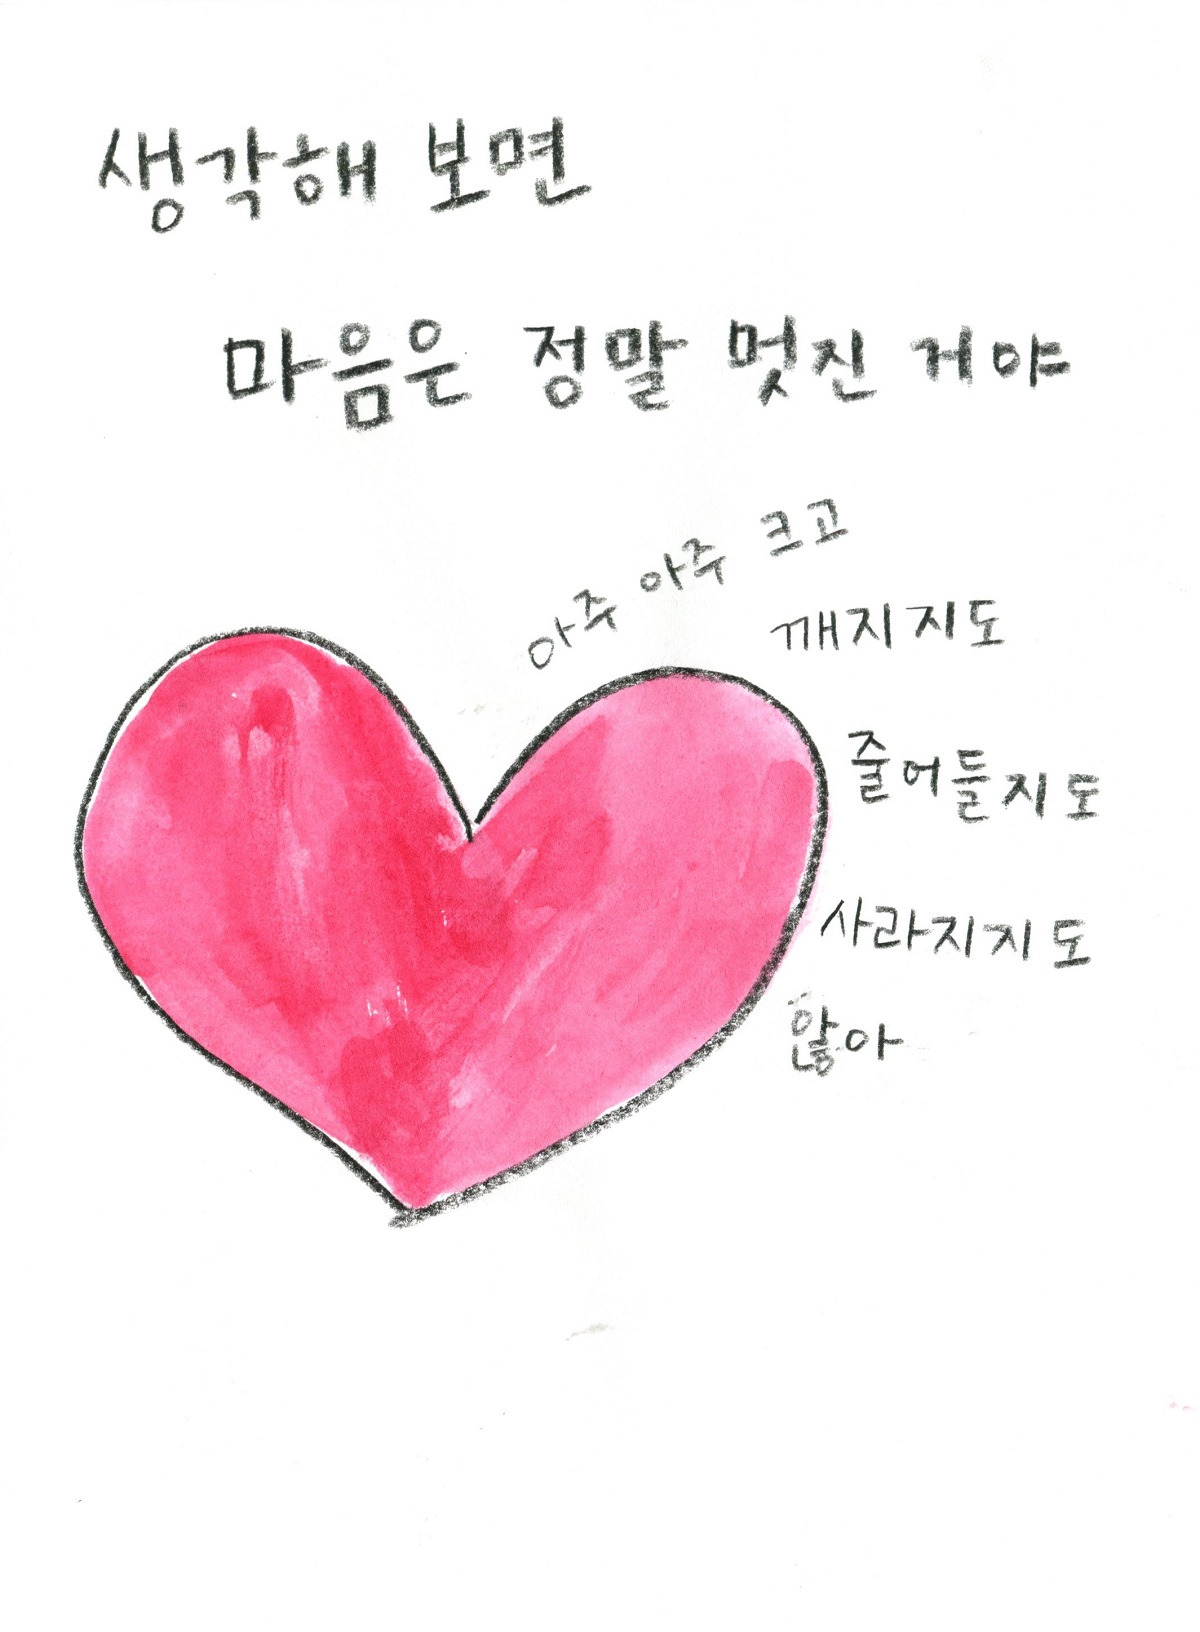 생각해 보면
마음은 정말 멋진 거야
아주 아주 크고
깨지지도
줄어들지도
사라지지도
않아